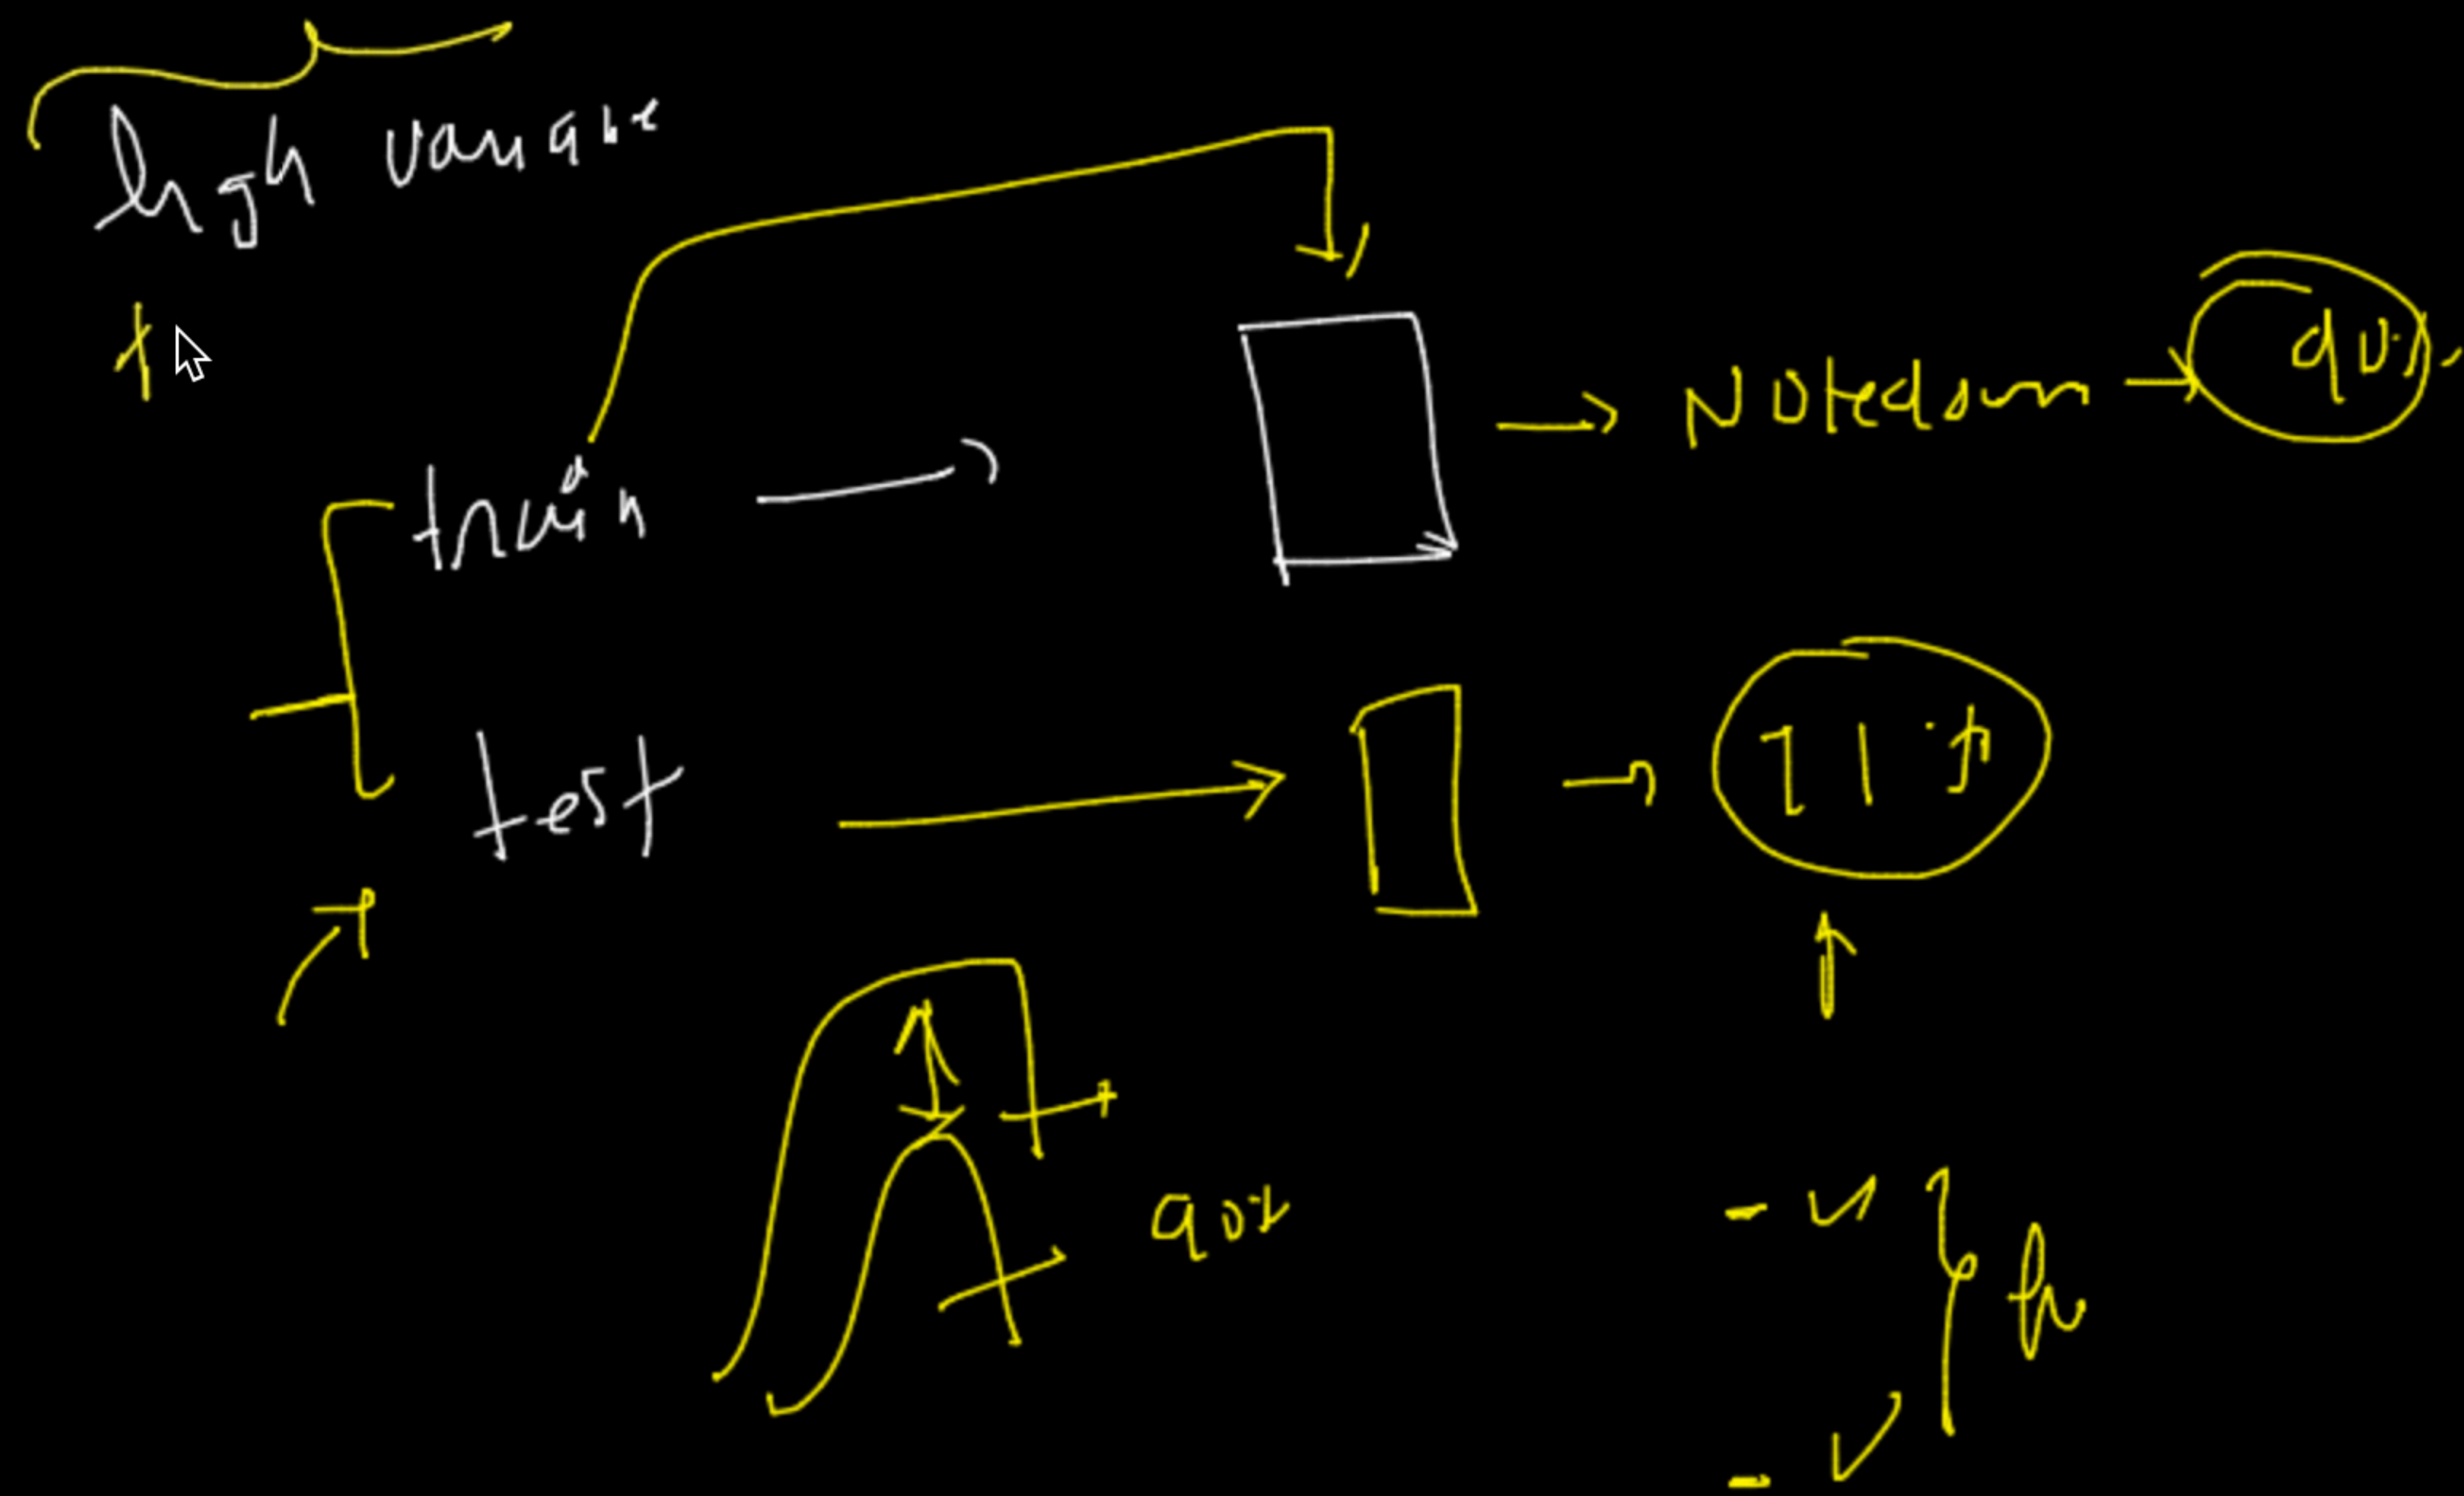 high variance
train
Notedown
90%
test
71%
90%